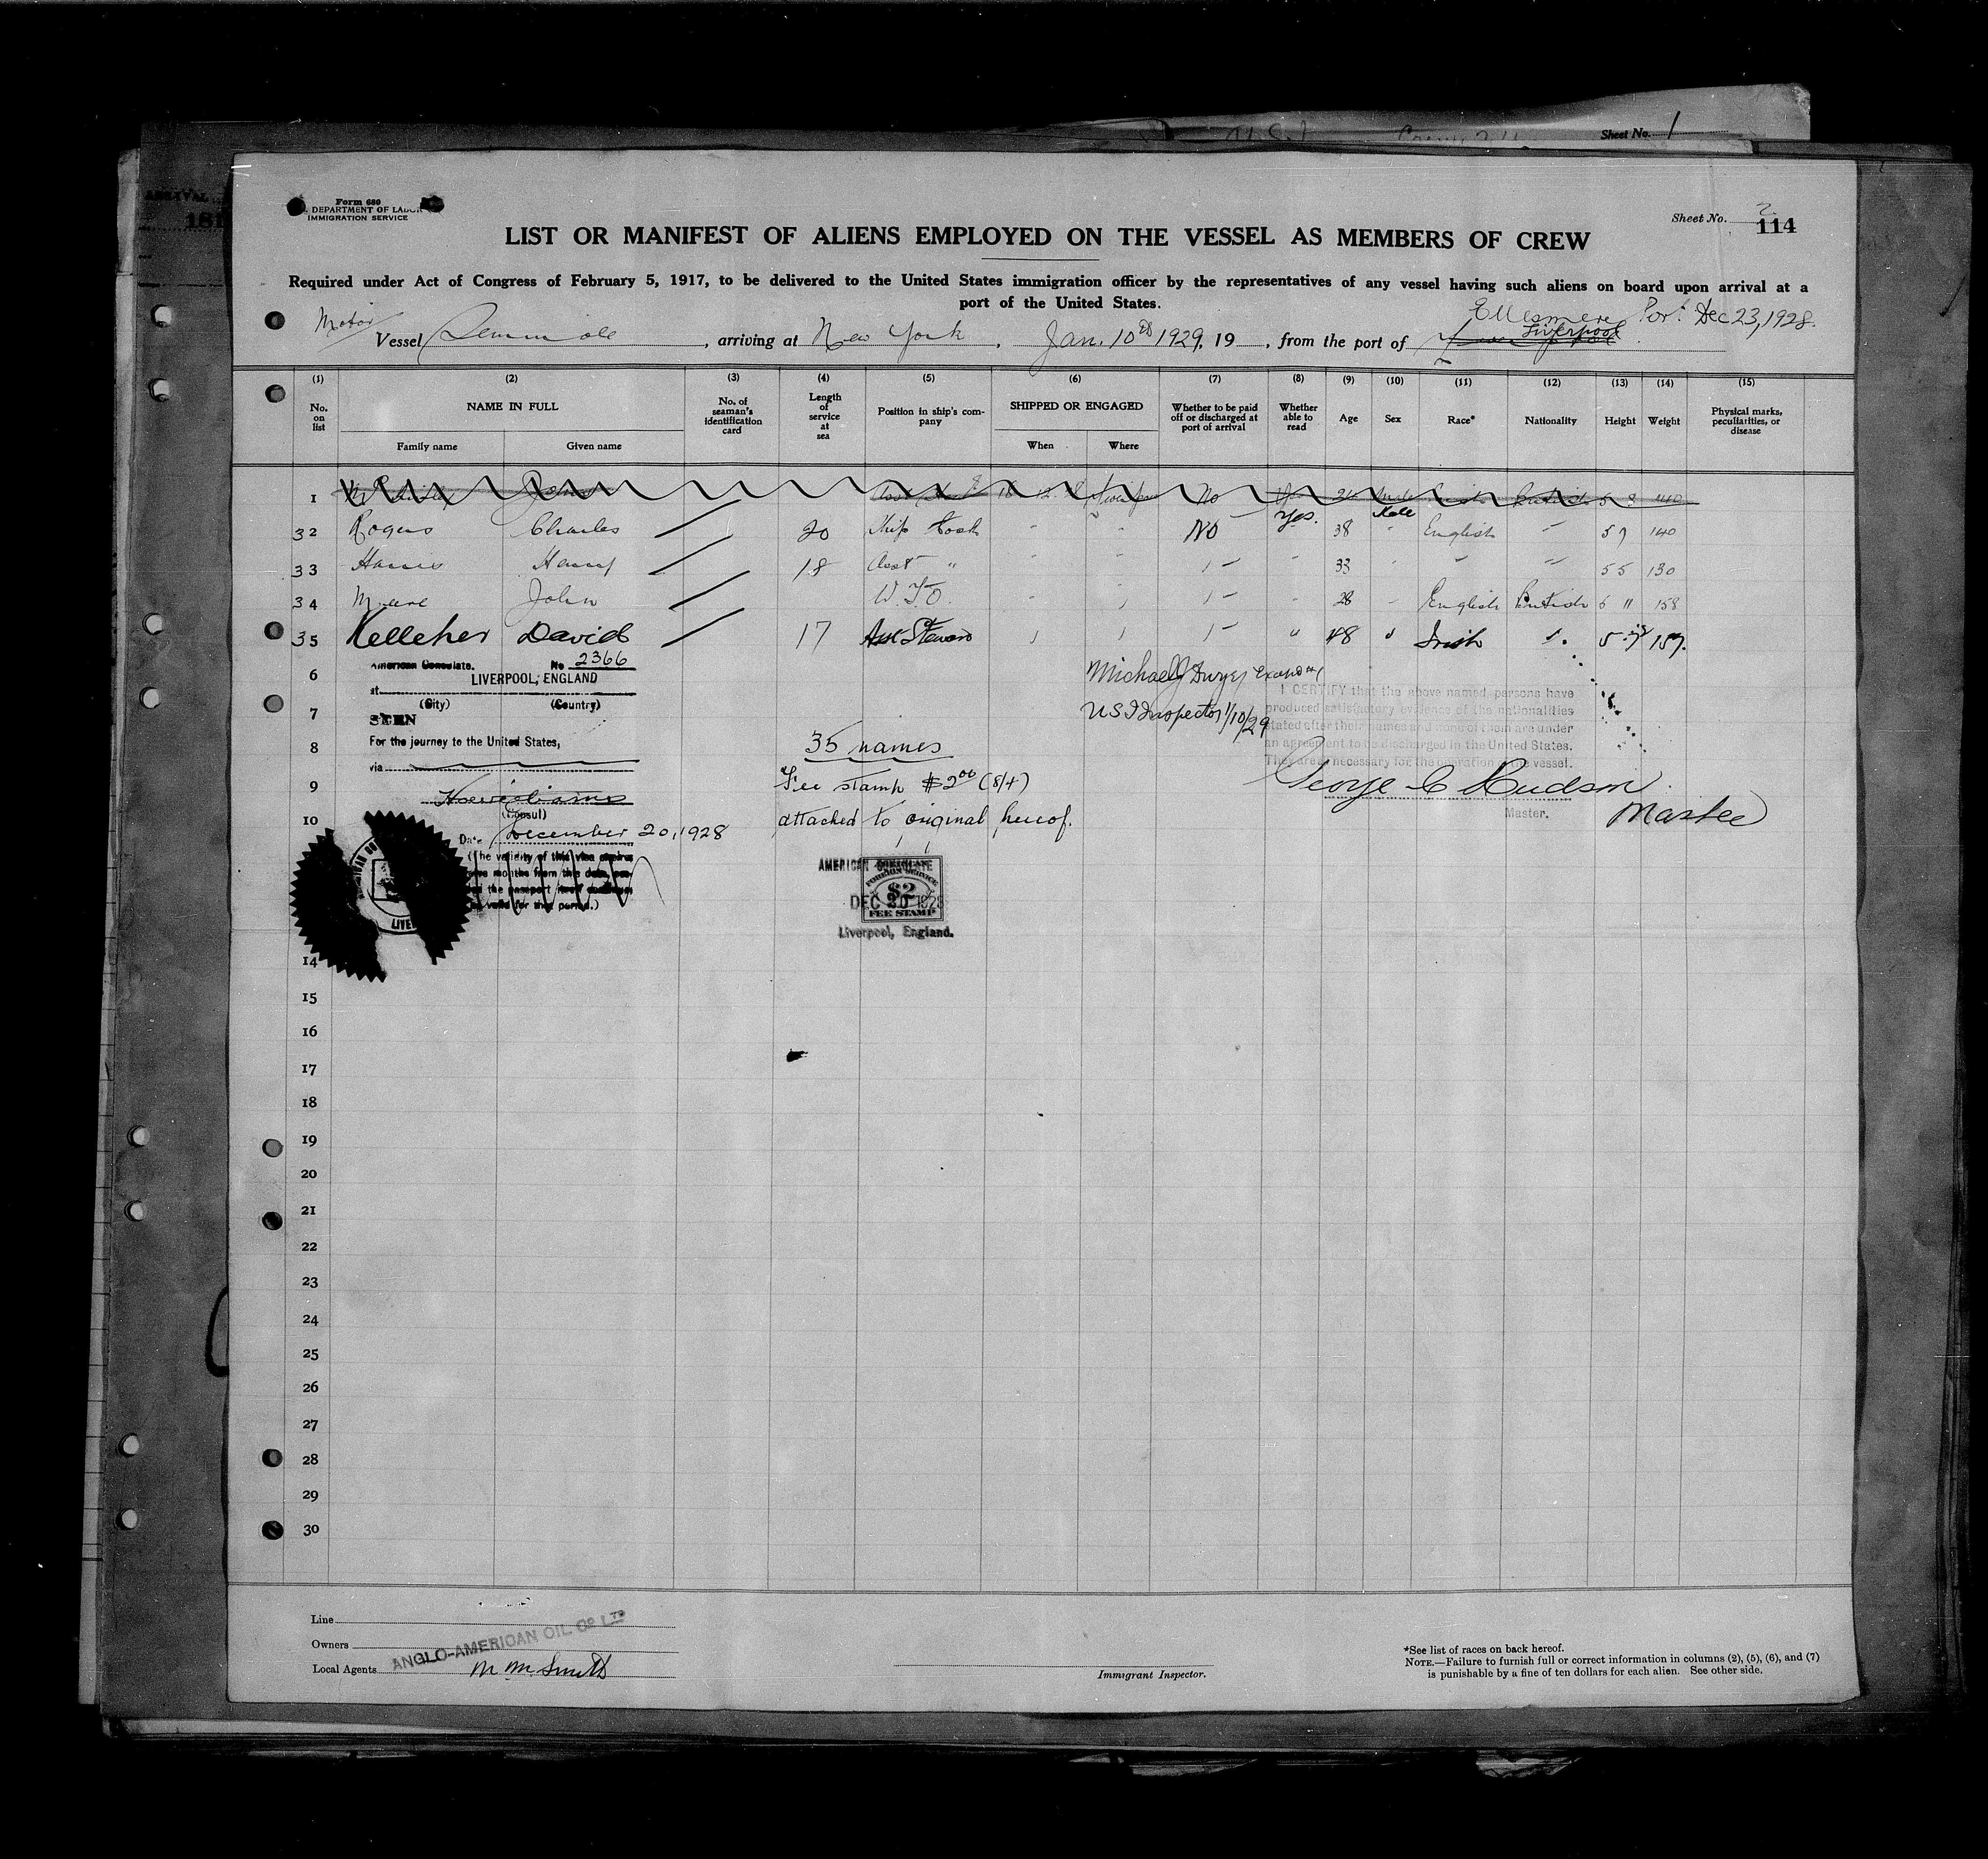 Sheet No. 1
ARRIVAL
181
Form 680
DEPARTMENT OF LABOR
IMMIGRATION SERVICE
Sheet No. 2
114
LIST OR MANIFEST OF ALIENS EMPLOYED ON THE VESSEL AS MEMBERS OF CREW
Required under Act of Congress of February 5, 1917, to be delivered to the United States immigration officer by the representatives of any vessel having such aliens on board upon arrival at a
port of the United States.
Ellesmere Port Dec 23, 1928.
Motor Vessel Seminole, arriving at New York, Jan. 10th 1929, 19, from the port of Liverpool
(1) (2) (3) (4) (5) (6) (7) (8) (9) (10) (11) (12) (13) (14) (15)
No. on list
NAME IN FULL
Family name Given name
No. of seaman's identification card
Length of service at sea
Position in ship's company
SHIPPED OR ENGAGED
When Where
Whether to be paid off or discharged at port of arrival
Whether able to read
Age
Sex
Race*
Nationality
Height
Weight
Physical marks, peculiarities, or disease
1 John No Yes Male Irish British 5 8 140
32 Rogers Charles 20 Ship Cook " " No Yes. 38 Male English " 5 7 140
33 Harris Harry 18 Asst " " " " " 33 " " " 5 5 130
34 John W.T.O. " " " " 28 " English British 5 11 158
35 Kelleher David 17 Asst Steward " " " " 48 " Irish ". 5 7 157.
6
American Consulate. No 2366
at LIVERPOOL, ENGLAND
(City) (Country)
7
SEEN
8
For the journey to the United States,
via
9
(Consul)
10
Date December 20, 1928
(The validity of this visa expires
months from this date,
the passport
valid for that period.)
35 names
Fee stamp $2.00 (8/4)
attached to original hereof.
AMERICAN CONSULATE
FOREIGN SERVICE
$2
DEC 20 1928
FEE STAMP
Liverpool, England.
Michael J Dwyer
U S I Inspector 1/10/29
I CERTIFY that the above named persons have
produced satisfactory evidence of the nationalities
stated after their names and none of them are under
an agreement to be discharged in the United States.
They are necessary for the operation of the vessel.
George C Hudson
Master. Master
14
15
16
17
18
19
20
21
22
23
24
25
26
27
28
29
30
Line
Owners ANGLO-AMERICAN OIL CO LTD
Local Agents M M Smith
Immigrant Inspector.
*See list of races on back hereof.
NOTE.—Failure to furnish full or correct information in columns (2), (5), (6), and (7)
is punishable by a fine of ten dollars for each alien. See other side.